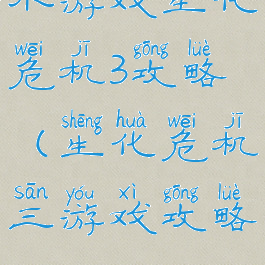 游戏生化
wēi jī gōng lüè
危机3攻略
shēng huà wēi jī
(生化危机
sān yóu xì gōng lüè
三游戏攻略